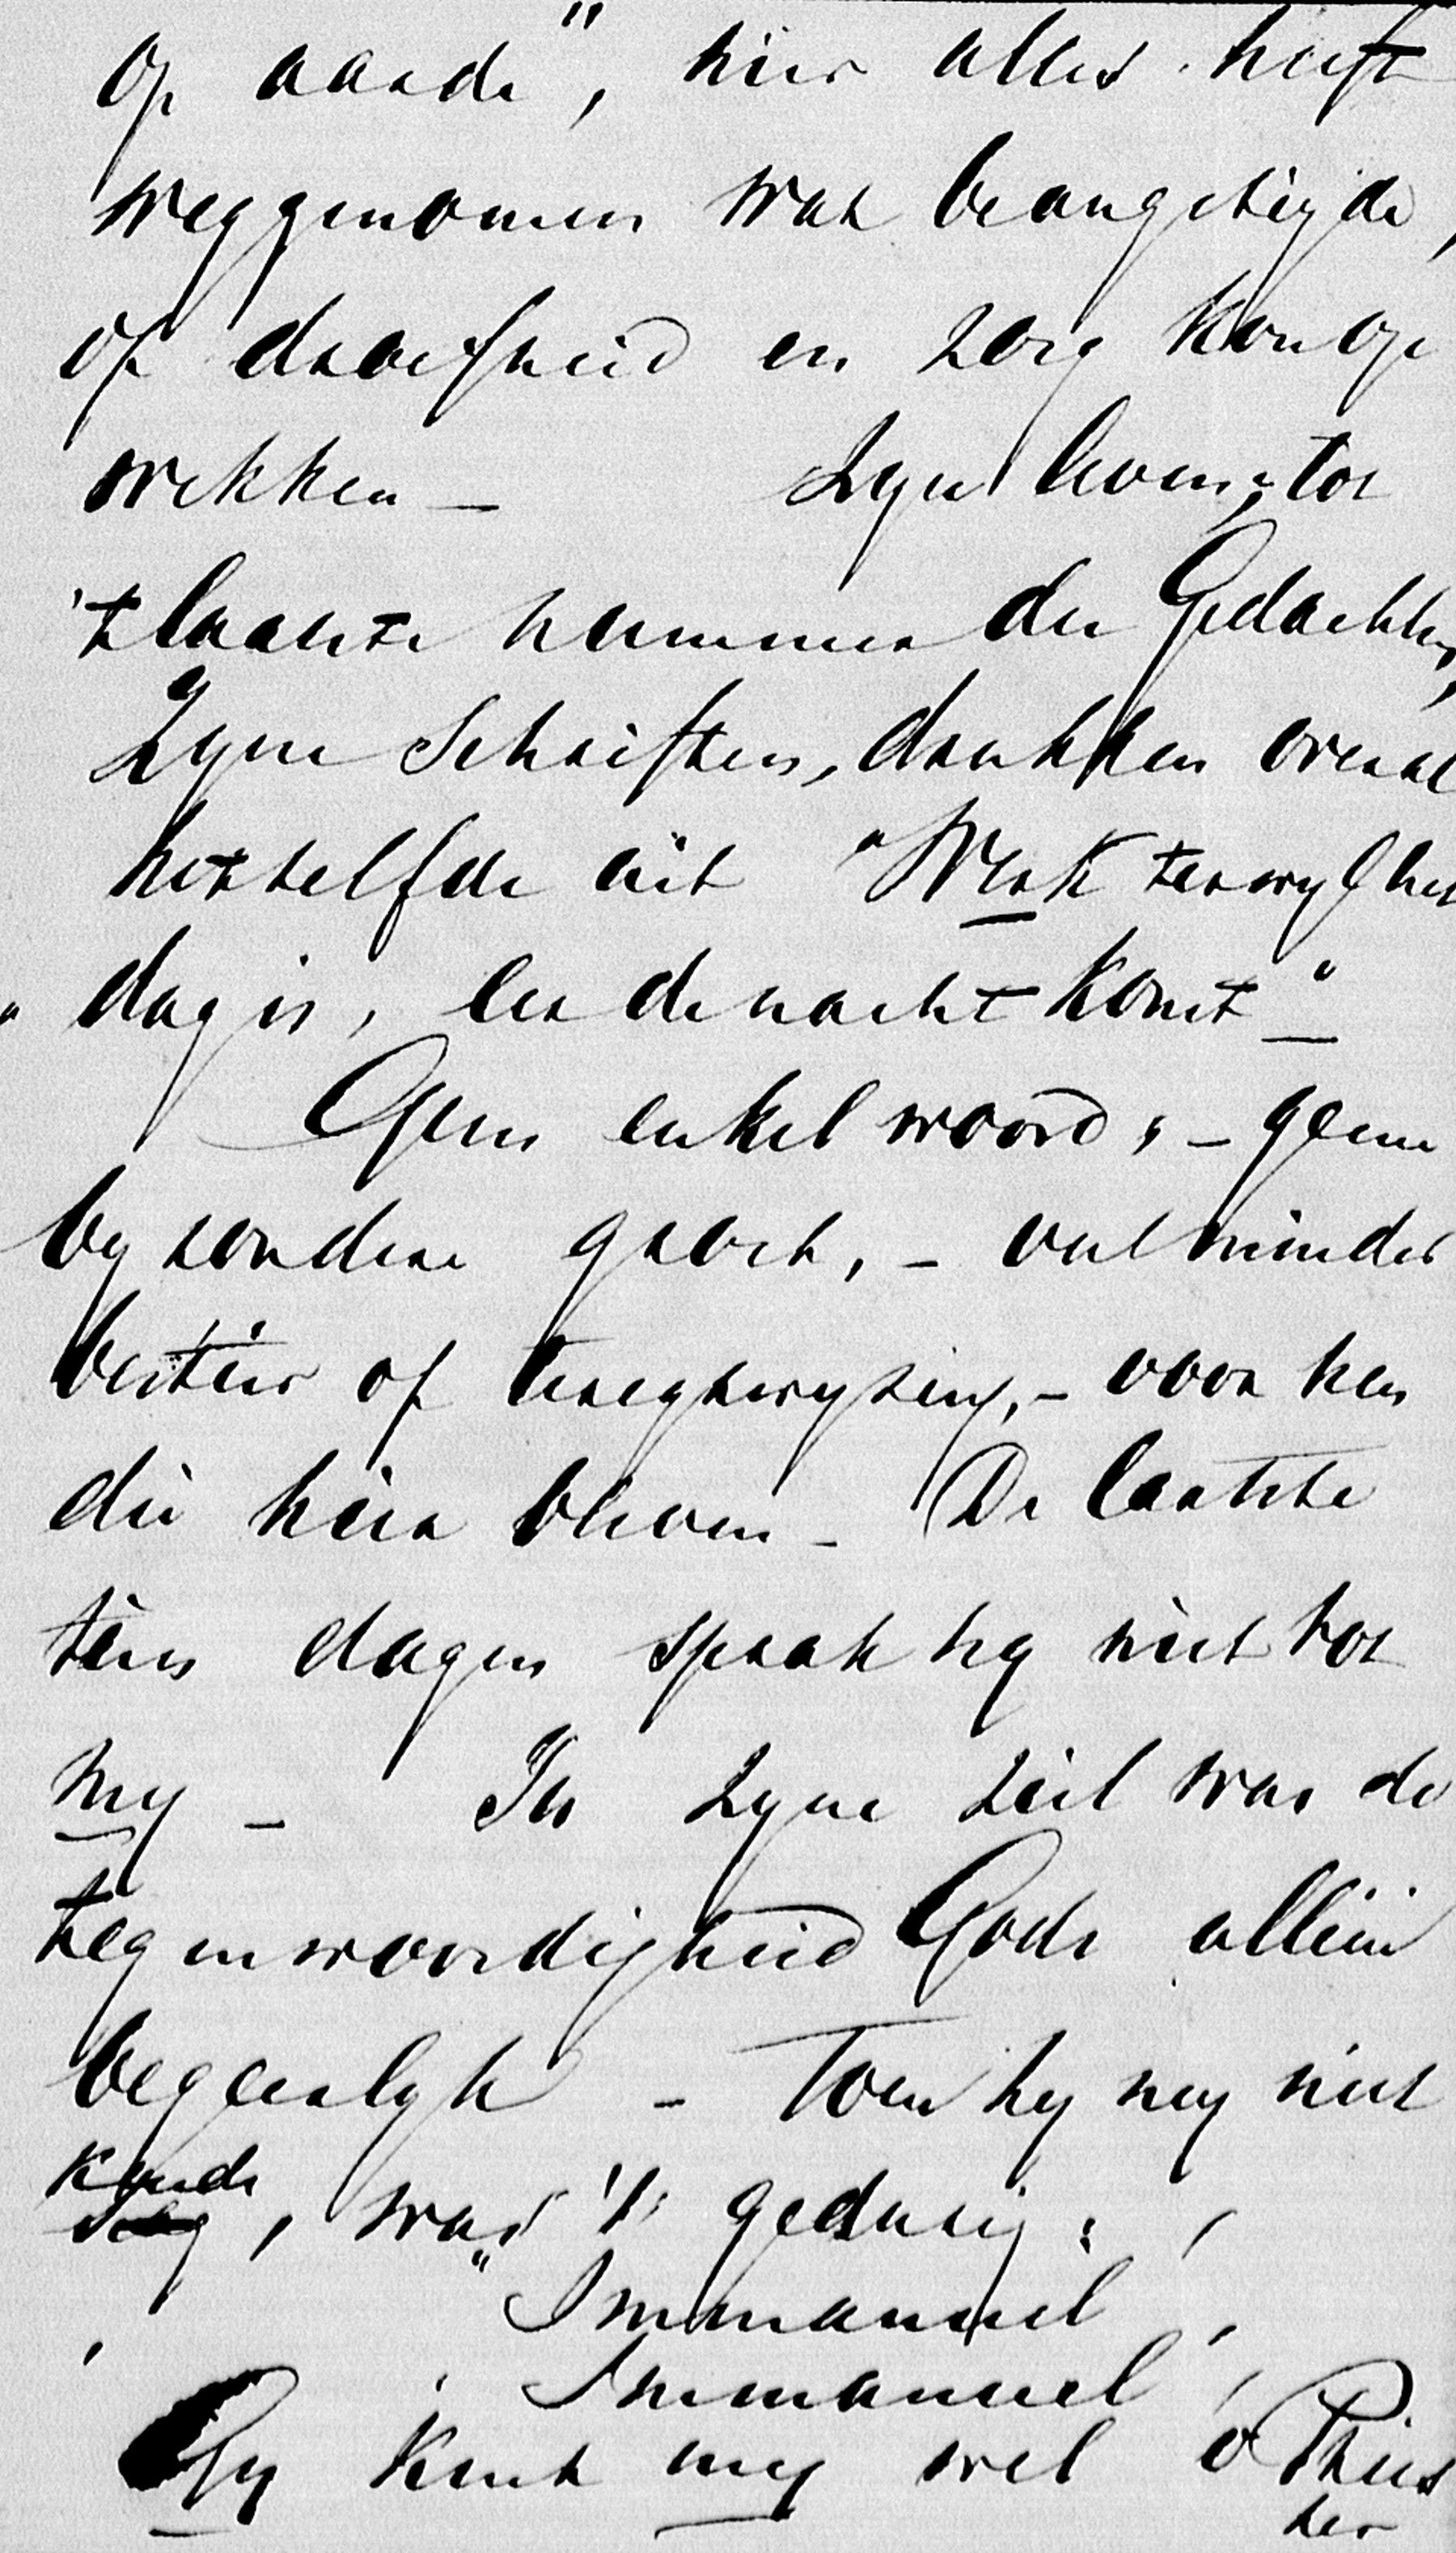 op aarde", hier alles heeft
weggenomen wat beangstigde,
of droefheid en zorg kon op
wekken —  Zyn leven, tot
't laatste nummer der Gedachten,
Zyne Schriften, drukken overal
hetzelfde uit "Werk terwyl het
" dag is, eer de nacht komt" —
Geen enkel woord; — geene
byzondere groet, — veel minder
bestuur of teregtwyzing, — voor hen
die hier bleven — De laatste
tien dagen sprak hy niet tot
my — In zyne ziel was de
tegenwoordigheid Gods alleen
begeerlyk — Toen hy my niet
kende
zag, was 't gedurig:
"Immanuel,
Immanuel,
Gy kent my wel o Thirs